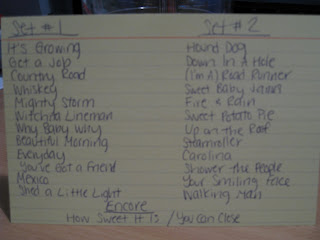 Set #1
It's Growing
Get a Job
Country Road
Whiskey
Mighty Storm
Witchita Lineman
Why Baby Why
Beautiful Morning
Everyday
You've Got a Friend
Mexico
Shed a Little Light
Set #2
Hound Dog
Down In A Hole
(I'm A) Road Runner
Sweet Baby James
Fire & Rain
Sweet Potato Pie
Up on the Roof
Steamroller
Carolina
Shower the People
Your Smiling Face
Walking Man
Encore
How Sweet It Is / You Can Close